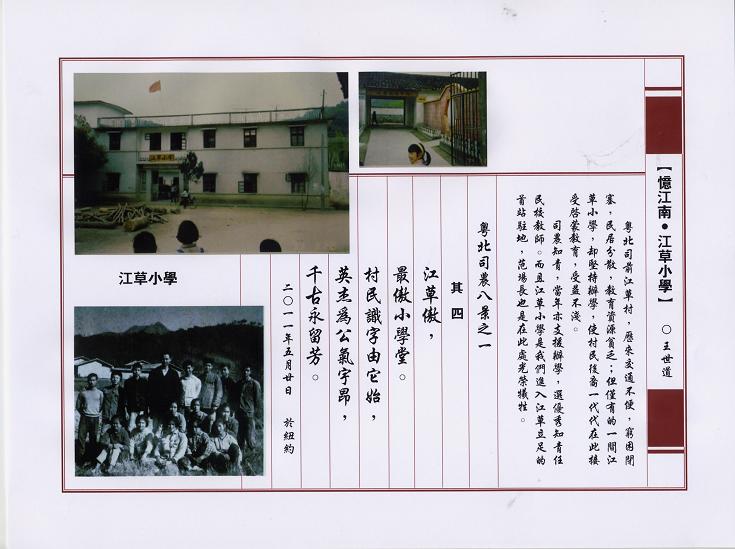 【憶江南•江草小學】 ○王世道
粵北司前江草村，歷來交通不便，窮困閉
塞，民居分散，教育資源貧乏；但僅有的一間江
草小學，却堅持辦學，使村民後裔一代代在此接
受啓蒙教育，受益不淺。
司農知青，當年亦支援辦學，選優秀知青任
民校教師。而且江草小學是我們進入江草立足的
首站駐地，范場長也是在此處光榮犧牲。
粵北司農八景之一
其四
江草傲，
最傲小學堂。
村民識字由它始，
英杰為公氣宇昂，
千古永留芳。
二〇一一年五月廿日 於紐約
江草小學
江草小學